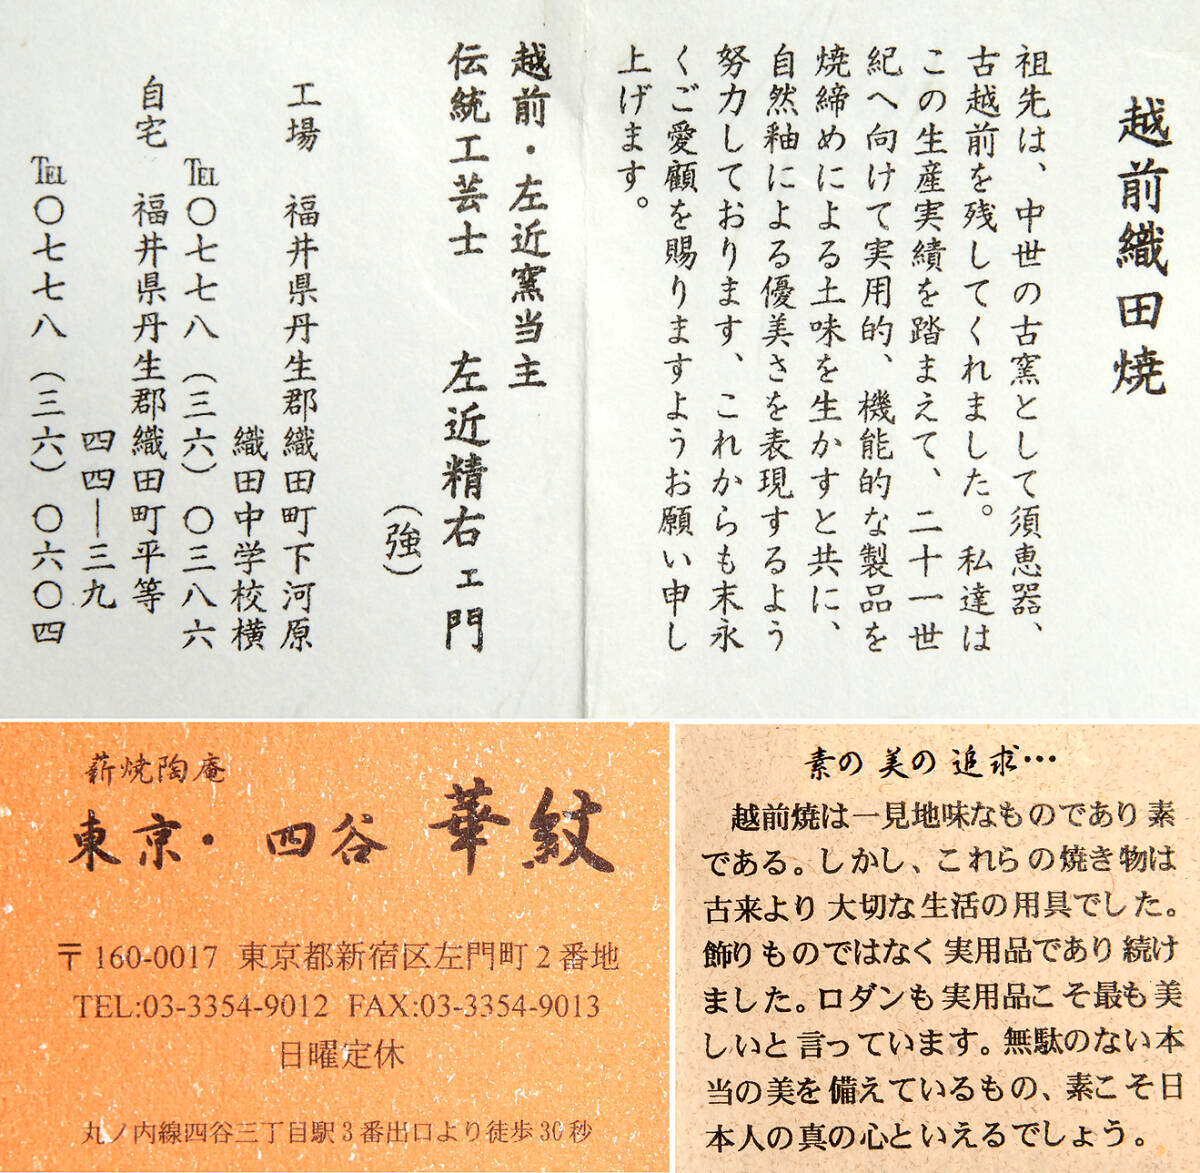 越前織田焼
祖先は、中世の古窯として須恵器、
古越前を残してくれました。私達は
この生産実績を踏まえて、二十一世
紀へ向けて実用的、機能的な製品を
焼締めによる土味を生かすと共に、
自然釉による優美さを表現するよう
努力しております、これからも末永
くご愛顧を賜りますようお願い申し
上げます。
越前・左近窯当主
伝統工芸士 左近精右ェ門
(強)
工場 福井県丹生郡織田町下河原
織田中学校横
TEL〇七七八(三六)〇三八六
自宅 福井県丹生郡織田町平等
四四―三九
TEL〇七七八(三六)〇六〇四
薪焼陶庵
東京・四谷 華紋
〒160-0017 東京都新宿区左門町2番地
TEL:03-3354-9012 FAX:03-3354-9013
日曜定休
丸ノ内線四谷三丁目駅3番出口より徒歩30秒
素の美の追求…
越前焼は一見地味なものであり素
である。しかし、これらの焼き物は
古来より大切な生活の用具でした。
飾りものではなく実用品であり続け
ました。ロダンも実用品こそ最も美
しいと言っています。無駄のない本
当の美を備えているもの、素こそ日
本人の真の心といえるでしょう。